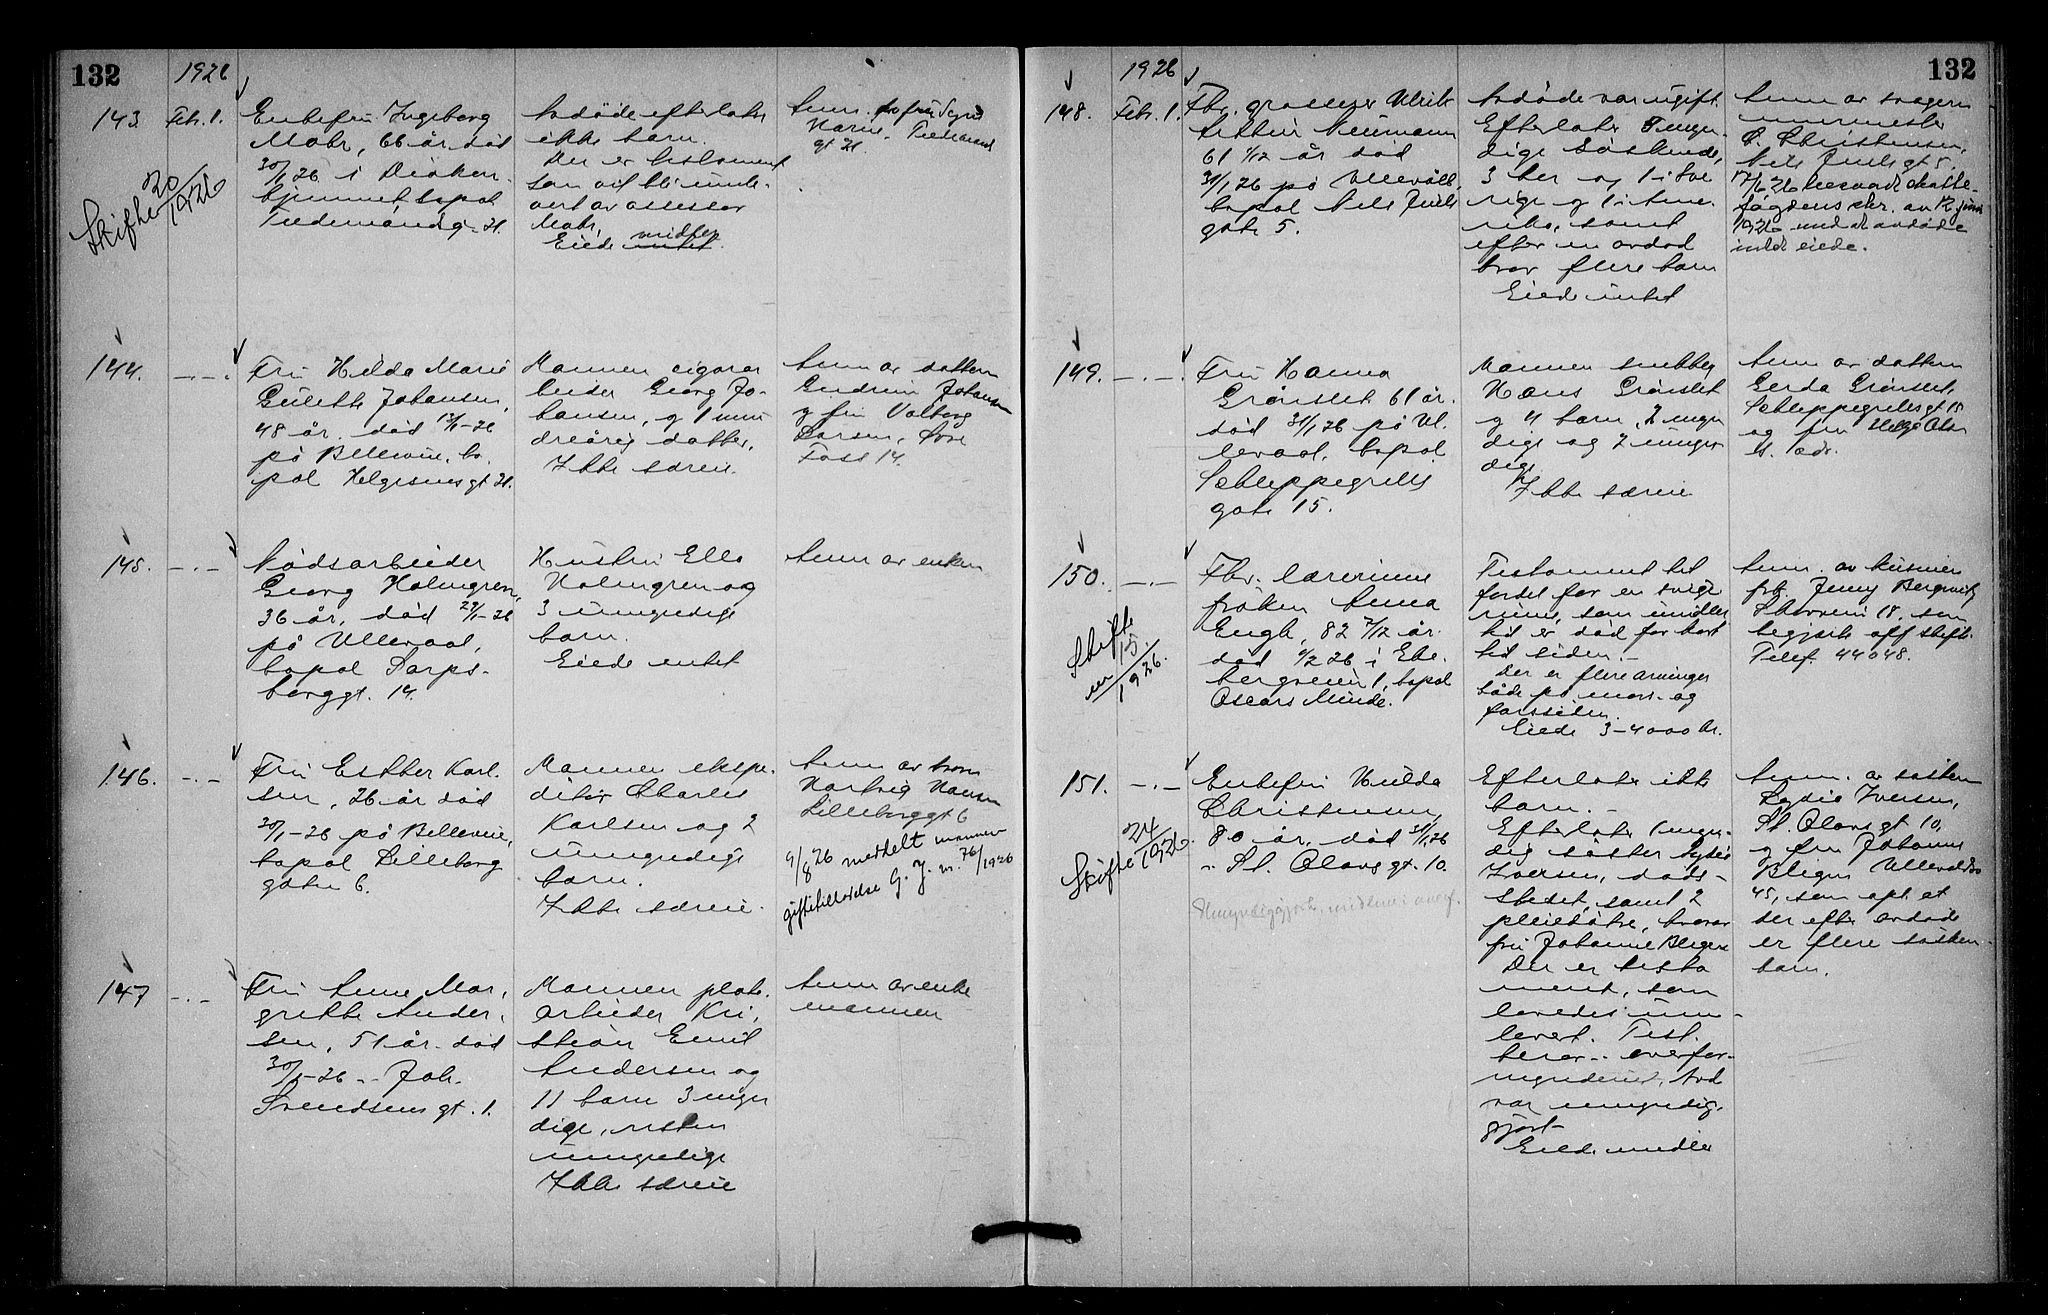 132
1926
143. Feb. 1.
Enkefru Ingeborg
Mohr, 66 år død
30/1 26 i Diakon-
hjemmet bopæl
Tiedemandsg. 21.
Skifte 20/1926
Avdøde efterlater
ikke barn.
Der er testament
som vil bli
av assessor
Mohr,
Eiede midler
intet
Anm.
gt 21.
144. -.-.
Fru Hilda Marie
Johansen,
48 år. død
på Bellevue, bo-
pæl Helgesensgt 21.
Mannen cigarar
beider Georg Jo-
hansen, og 1 min
dreårig datter,
Ikke særeie.
Anm av datteren
Gudrun Johansen
og fru Valborg
Larsen,
Foss 14.
145. -.-
Nødsarbeider
Georg Holmgren,
36 år, død 29/1-26
på Ullevaal,
bopæl Sarps-
borggt. 14.
Hustru Ella
Holmgren og
3 umyndige
barn.
Eiede intet
Anm av enken
146. -.-
Fru Esther Karl-
sen, 26 år død
30/1-26 på Bellevue,
bopæl Lilleborg
gaten 6.
Mannen ekspe-
ditør Charles
Karlsen og 2
umyndige
barn.
Ikke særeie.
Anm av
Hartvig Hansen
Lilleborggt 6
9/8 26 meddelt mannen
giftetilladelse G. J. nr. 76/1926
147 -.-
Fru Anne Mar-
grethe Ander-
sen, 51 år død
30/1-26 .. Joh.
Svendsens gt. 1.
Mannen plate
arbeider Kri-
stian Emil
Andersen og
11 barn 3 myn
dige, resten
umyndige
Ikke særeie
Anm av enke
mannen
132
1926
148. Feb. 1.
Fhv. grosserer Ulrik
Neumann
61 1/12 år død
31/1 26 på Ullevål,
bopæl Niels Juels
gate 5.
Avdøde var ugift.
Efterlater 5 myn-
dige søskende,
3 her og 1 i Sve
rige og 1 i Ame-
rika, samt
efter en avdød
bror flere barn
Eiede intet
Anm av svogeren
murmester
Christensen,
Niels Juels gt 5.
17/6 26 skatte-
fogdens skr. av 12 juni
1926 avdøde
intet eiede.
149. -.-.
Fru Hanna
Grønslet 61 år.
død 31/1 26 på Ul-
levaal, bopæl
Schleppegrells
gate 15.
Mannen snekker
Hans Grønslet
og 4 barn, 2 myn
dige og 2 umyn
dige
Ikke særeie
Anm av datteren
Gerda Grønslet,
Schleppegrellsgt 15
og fru
150. -.-
Fhv. lærerinne
frøken Anna
Engh, 82 7/12 år.
død 1/2 26 i Eke-
bergveien 1, bopæl
Oscars Minde.
Skifte
nr 15/1926.
Testament til
fordel for en svige
rinne, som imidler
tid er død for kort
tid siden.-
Der er flere arvinger
både på mors- og
farssiden.
Eiede 3-4000 kr.
Anm. av kusinen
frk. Jenny
18, som
begjærte off skifte.
Telef. 44048.
151. -.-
Enkefru Hulda
Christensen,
80 år, død 31/1 26
.. St. Olavs gt. 10.
Skifte 24/1926.
Umyndiggjort, midlene i overf.
Efterlater ikke
barn.-
Efterlater 1 myn-
dig søster Lydia
Iversen, døds-
stedet, samt 2
pleiedøtre, hvorav
fru Johanne
Der er testa
ment, som
lovedes inn-
levert. Test.
beror .. overfor-
mynderiet. Avd
var umyndig-
gjort
Eiede midler
Anm. av søsteren
Lydia Iversen,
St. Olavs gt 10,
og fru Johanne
45, som opl. at
der efter avdøde
er flere søsken-
barn.